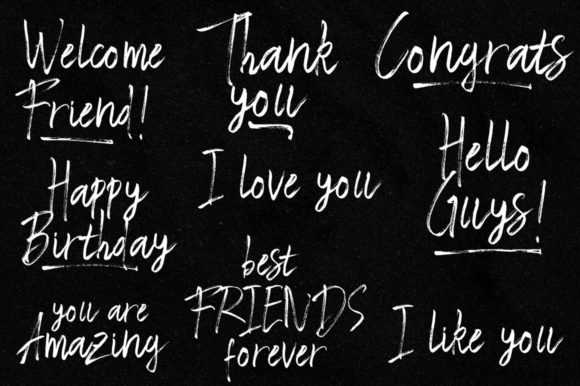 Welcome
Friend!
Thank
you
Congrats
Happy
Birthday
I love you
Hello
Guys!
you are
Amazing
best
FRIENDS
forever
I like you